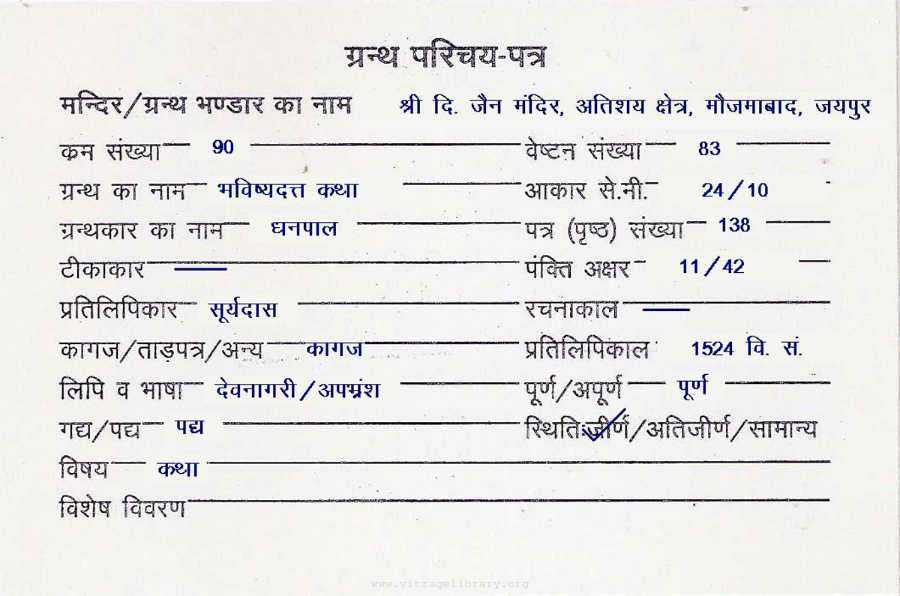 ग्रन्थ परिचय-पत्र
मन्दिर/ग्रन्थ भण्डार का नाम श्री दि. जैन मंदिर, अतिशय क्षेत्र, मौजमाबाद, जयपुर
कम संख्या 90 वेष्टन संख्या 83
ग्रन्थ का नाम भविष्यदत्त कथा आकार से.नी. 24/10
ग्रन्थकार का नाम धनपाल पत्र (पृष्ठ) संख्या 138
टीकाकार — पंक्ति अक्षर 11/42
प्रतिलिपिकार सूर्यदास रचनाकाल —
कागज/ताड़पत्र/अन्य कागज प्रतिलिपिकाल 1524 वि. सं.
लिपि व भाषा देवनागरी/अपभ्रंश पूर्ण/अपूर्ण पूर्ण
गद्य/पद्य पद्य स्थितिःजीर्ण/अतिजीर्ण/सामान्य
विषय कथा
विशेष विवरण
www.vitragelibrary.org